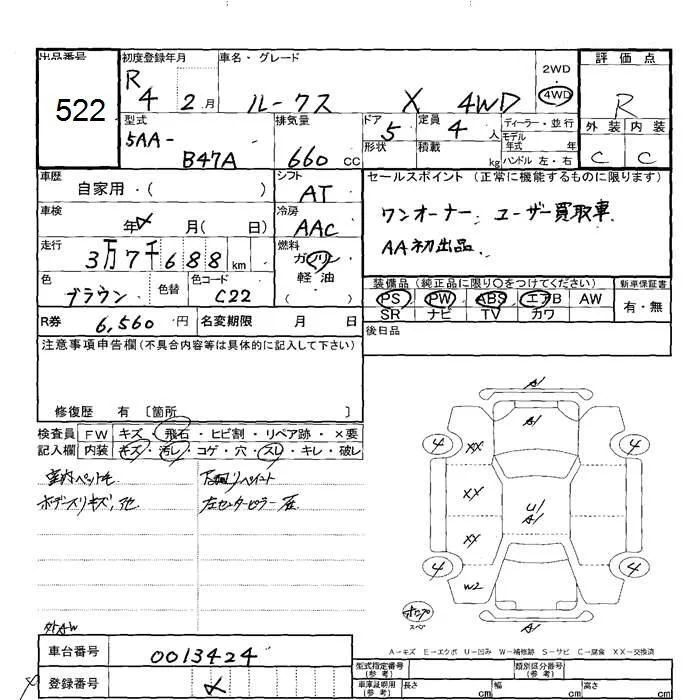 出品番号 522
初度登録年月 R 4 2 月
車名・グレード ルークス X 4WD
2WD 4WD
評価点 R
外装 内装
C C
型式 5AA- B47A
排気量 660 CC
ドア 5 形状
定員 4 人 積載 kg
ディーラー・並行
モデル年式 年
ハンドル 左・右
車歴 自家用・( )
シフト AT
車検 年 月( 日)
冷房 AAC
走行 3万7千688 km
燃料 ガソリン・軽油
色 ブラウン 色替 色コード C22
R券 6,560 円 名変期限 月 日
セールスポイント (正常に機能するものに限ります)
ワンオーナー、ユーザー買取車
AA初出品。
装備品(純正品に限り○をつけてください) 新車保証書
PS PW ABS エアB AW 有・無
SR ナビ TV カワ
後日品
注意事項申告欄(不具合内容等は具体的に記入して下さい)
修復歴 有 [箇所 ]
検査員 FW キズ・飛石・ヒビ割・リペア跡・×要
記入欄 内装 キズ・汚レ・コゲ・穴・スレ・キレ・破レ
室内ペット毛
ボデースリキズ、他
下廻りペイント
左センターピラー
外AW
車台番号 0013424
登録番号
A1
A1
4 XX 4
XX
U1
A1
XX
4 W2 4
スペア
A1
A-キズ E-エクボ U-凹み W-補修跡 S-サビ C-腐食 XX-交換済
型式指定番号(参考) 類別区分番号(参考)
車庫証明用(参考) 長さ cm 幅 cm 高さ cm